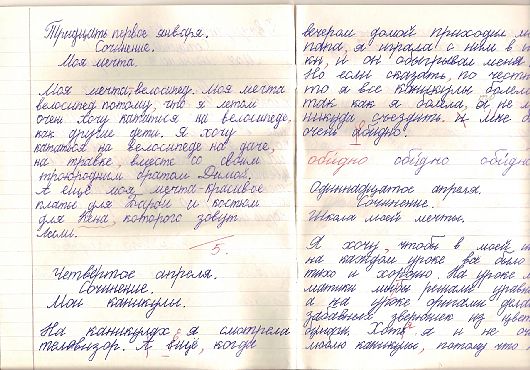 Тридцать первое января.
Сочинение.
Моя мечта.
Моя мечта, велосипед. Моя мечта
велосипед потому, что я летом
очен хочу кататся на велосипеде,
как другие дети. Я хочу
кататься на велосипеде на даче,
на травке, вместе со своим
троюродним братом Димой.
А ещё моя мечта-красивое
платье для Барби и костюм
для Кена, которого зовут
Лёлик.
5.
Четвертое апреля.
Сочинение.
Мои каникулы.
На каникулах я смотрела
телевизор. А ещё, когда
вечером домой приходил
папа, я играла с ним в
и он обыгрывал меня
Но если сказать, по
то я все каникулы болела
так как я болела, я не
никуда съездить. И мне
очень обидно!
обидно обидно обидно
Одиннадцатое апреля.
Сочинение.
Школа моей мечты.
Я хочу, чтобы в моей
на каждом уроке все было
тихо и хорошо. На уроке
мы решали
а на уроке оригами
забавных зверюшек из
бумаги. Хотя я и не
люблю каникулы, потому что